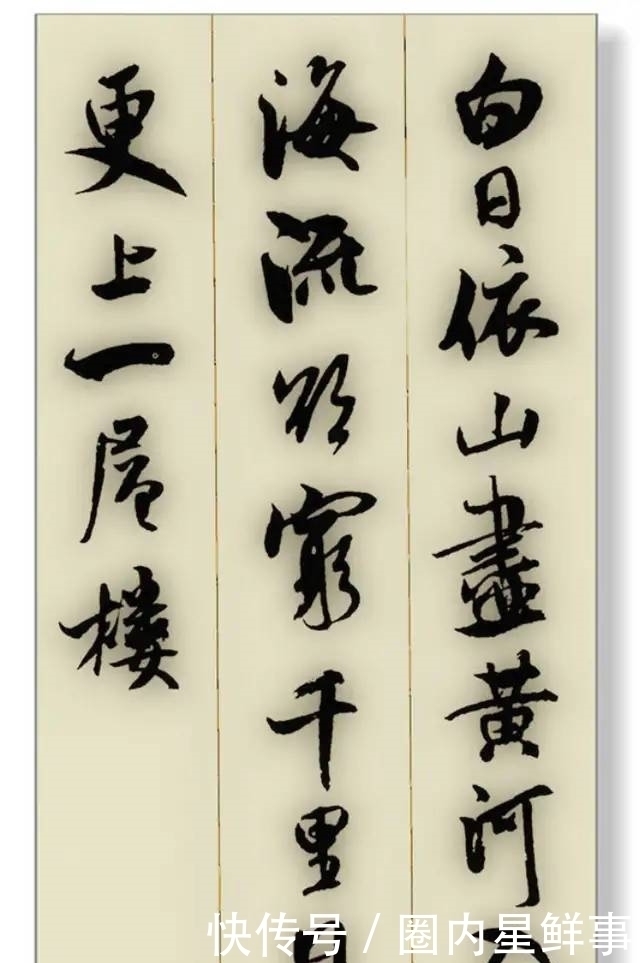 白日依山盡黄河
海流欲窮千里目
更上一層樓
快传号/圈内星鲜事